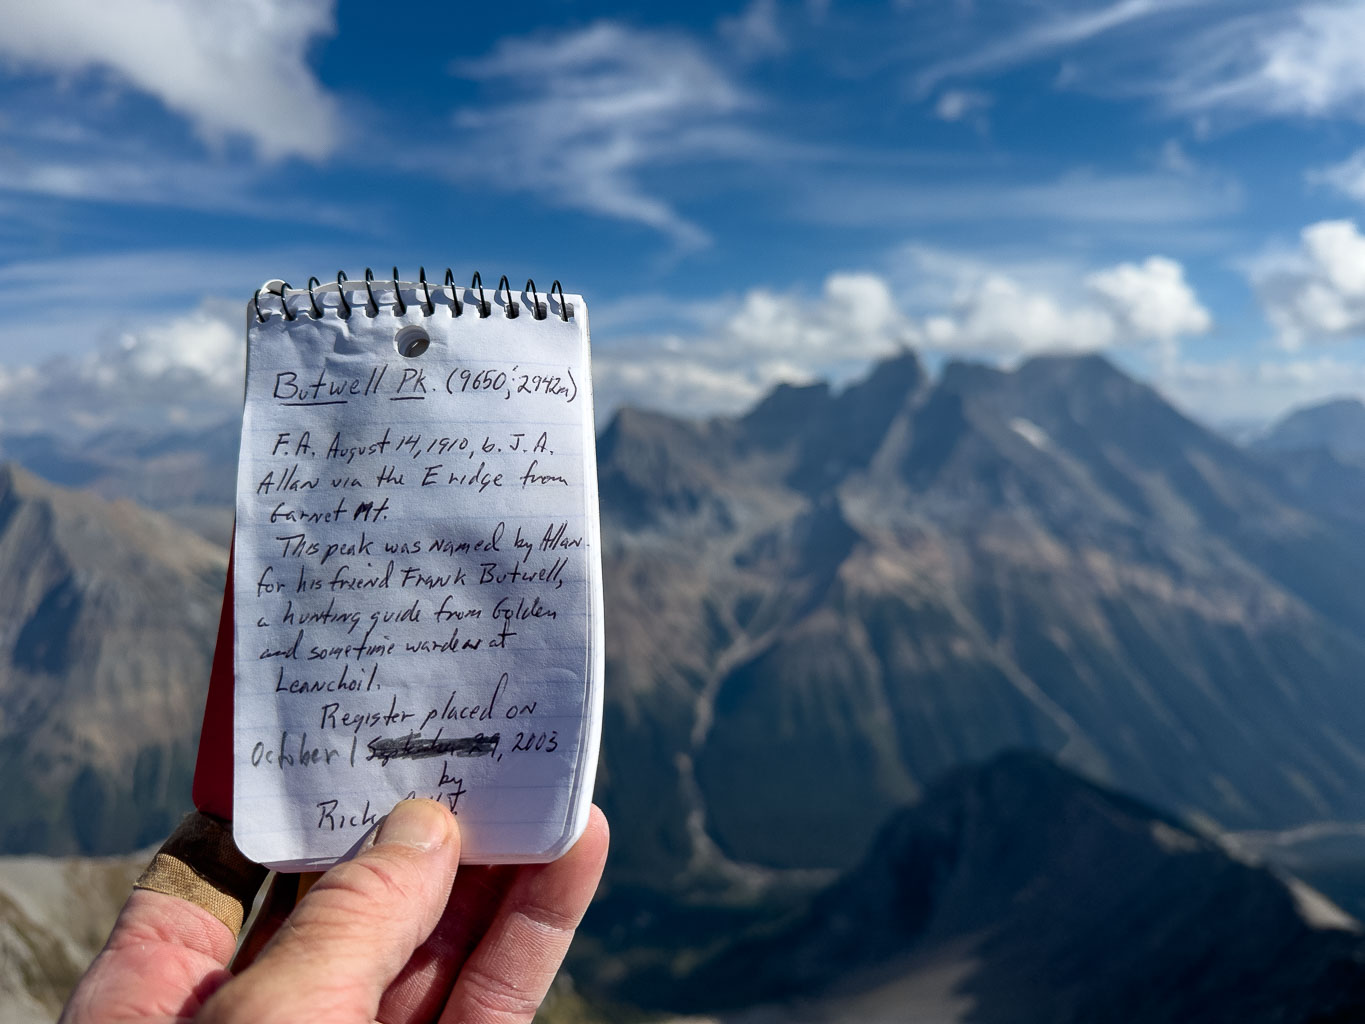 Butwell Pk. (9650'; 2942m)
F.A. August 14, 1910, b. J.A.
Allan via the E ridge from
Garnet Mt.
This peak was named by Allan
for his friend Frank Butwell,
a hunting guide from Golden
and sometime warden at
Leanchoil.
Register placed on
October 1 September 29, 2003
by
Rick